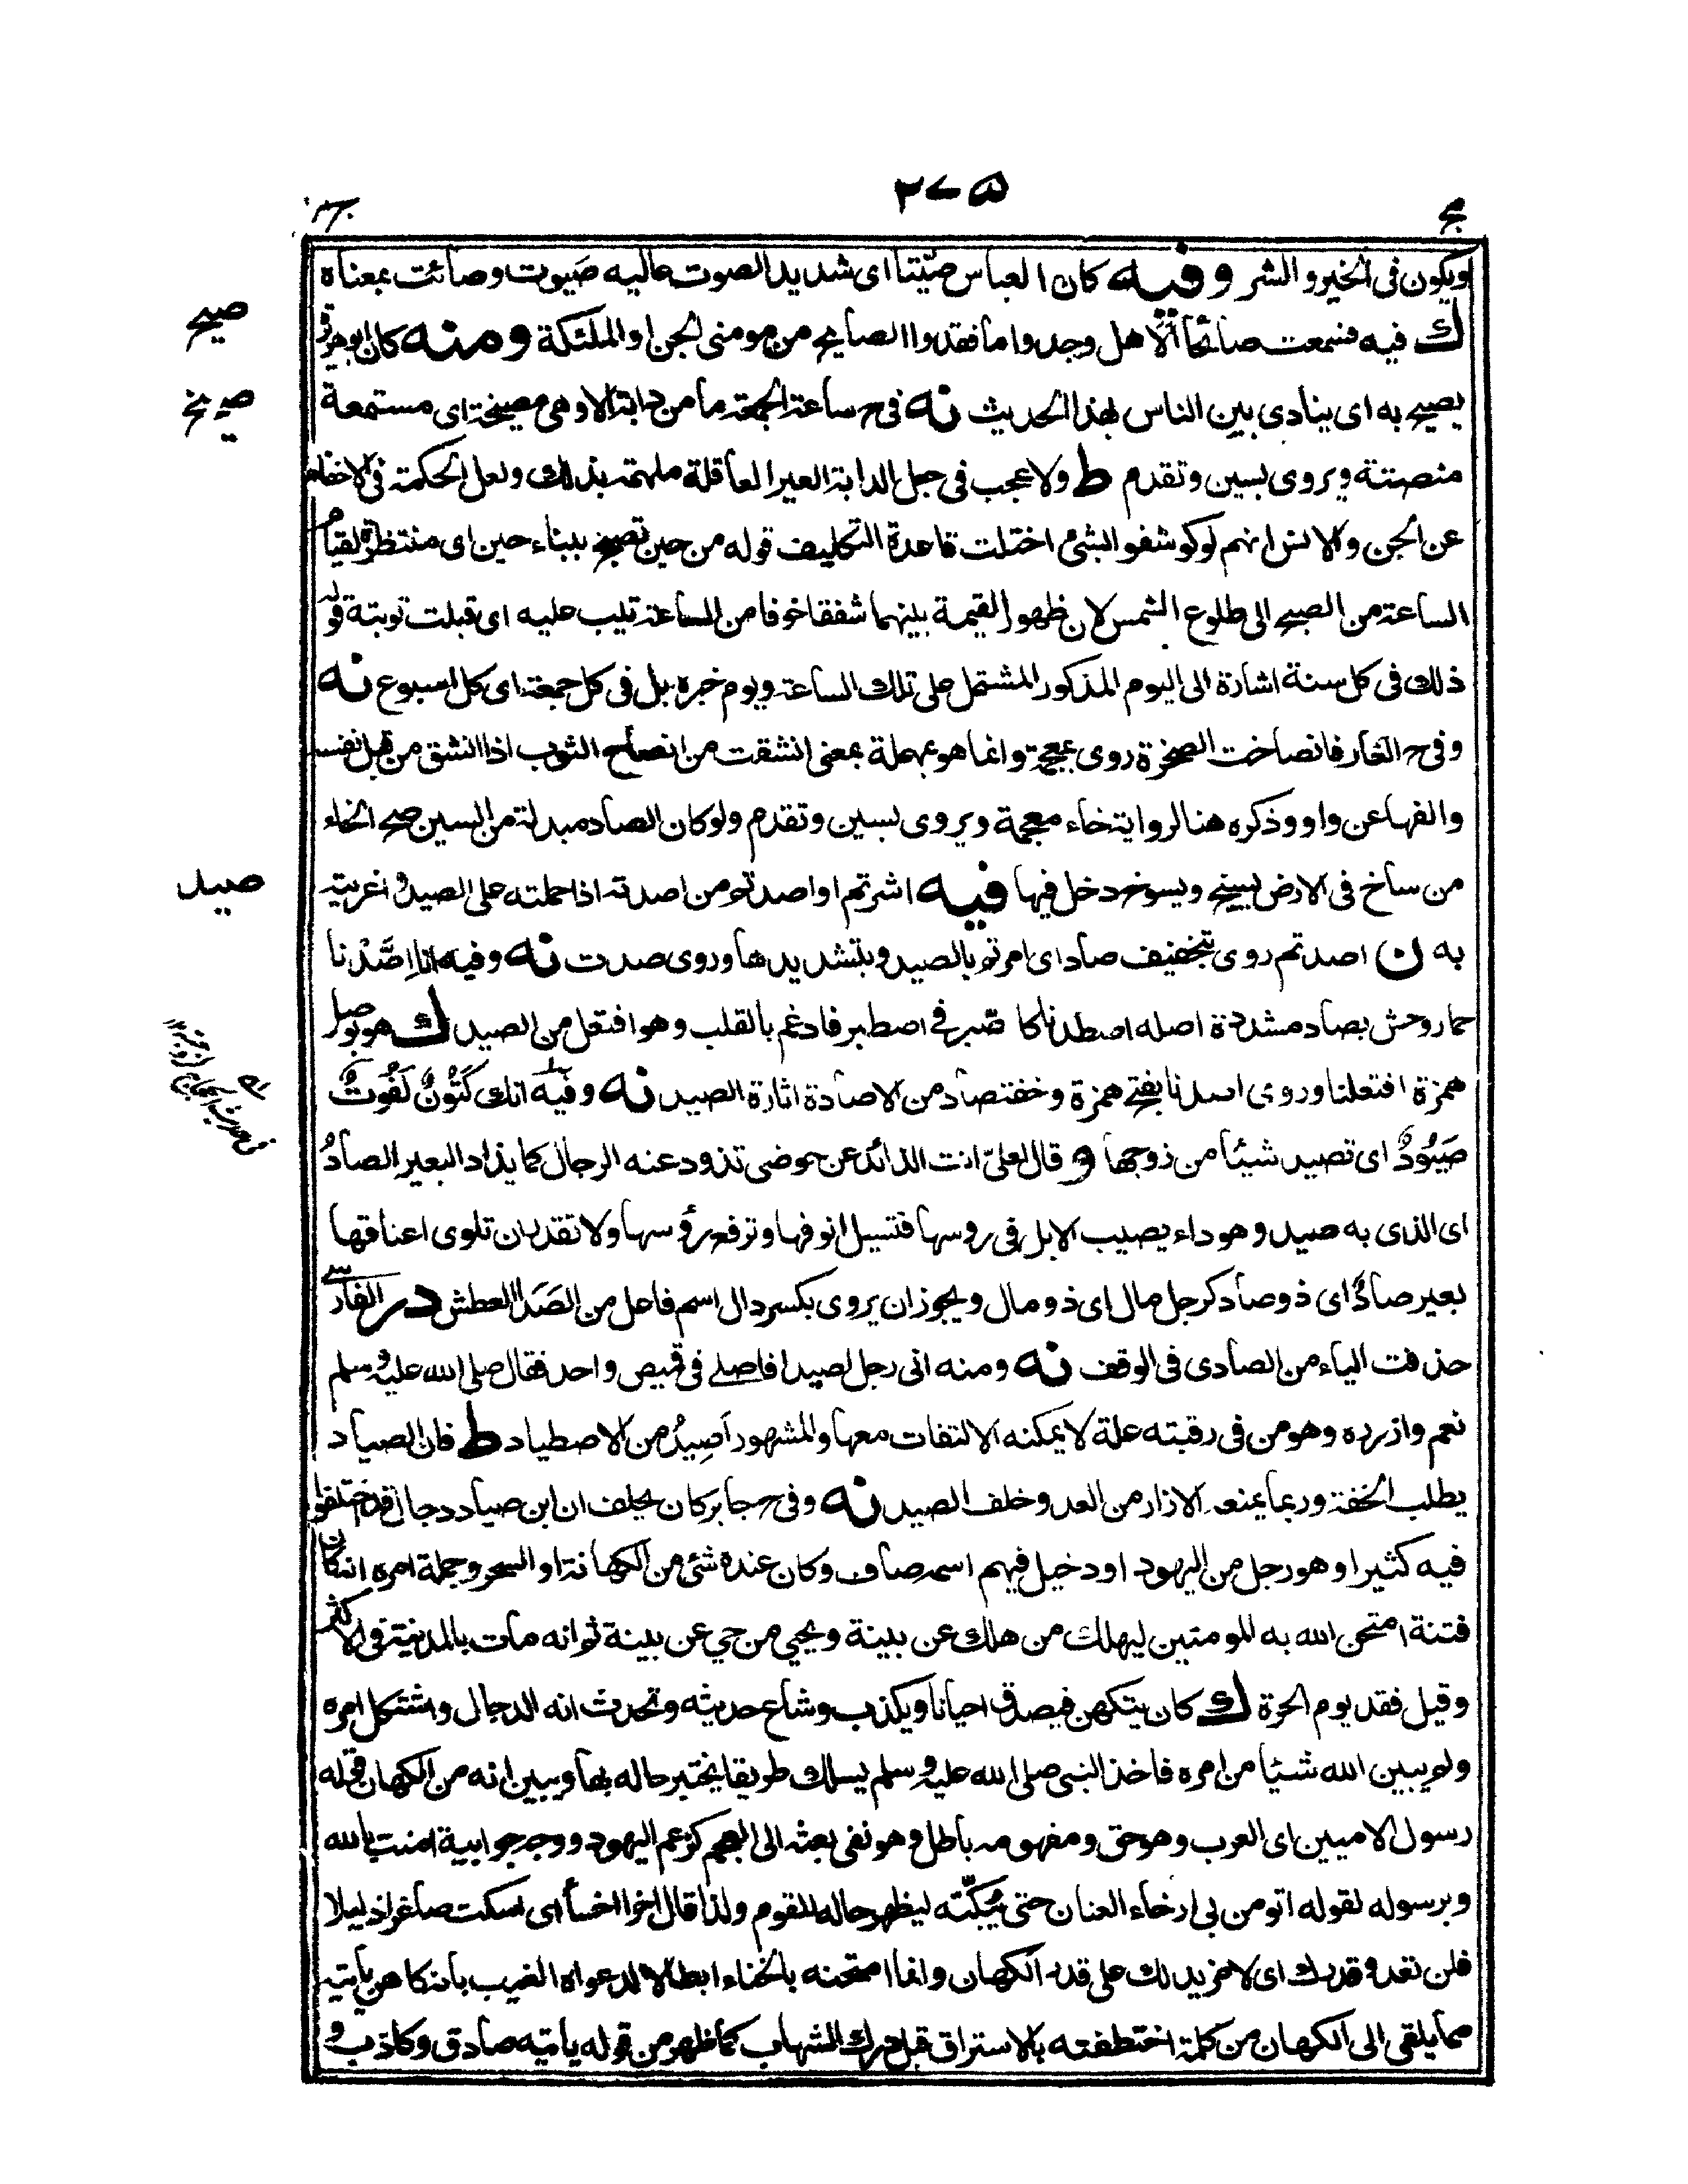 ٢٧٥
ويكون في الخير والشر وفيه كان العباس صيّتا اى شديد الصوت عاليه صَيوت وصائت بمعناه
صيح
ك فيه فسمعت صائحا ألا هل وجدوا ما فقدوا الصايح من مومنى الجن او الملئكة ومنه كان ابو هريرة
صيخ
يصيح به اى ينادى بين الناس بهذا الحديث نه فى ح ساعة الجمعة ما من دابة الا وهى مصيخة اى مستمعة
منصتة ويروى بسين وتقدم ط ولا عجب فى جعل الدابة الغير العاقلة ملهمة بذلك ولعل الحكمة فى الاخفاء
عن الجن والانس انهم لو كوشفوا بشئ اختلت قاعدة التكليف قوله من حين تصبح ببناء حين اى منتظرة لقيام
الساعة من الصبح الى طلوع الشمس لان ظهور القيمة بينهما شفقا خوفا من الساعة تيب عليه اى قبلت توبتة قوله
ذلك فى كل سنة اشارة الى اليوم المذكور المشتمل على تلك الساعة ويوم خبره بل فى كل جمعة اى كل اسبوع نه
وفى ح الغار فانصاخت الصخرة روى بمعجمة وانما هو بمهملة بمعنى انشقت من انصاح الثوب اذا انشق من قبل نفسه
والفها عن واو وذكره هنا لرواية خاء معجمة ويروى بسين وتقدم ولو كان الصاد مبدلة من السين صح الخاء
صيد
من ساخ فى الارض يسيخ ويسوخ دخل فيها فيه اشرتم او اصدتم من اصدته اذا حملته على الصيد واغريته
به ن اصدتم روى بتخفيف صاد اى امرتم بالصيد وبتشديدها وروى صدت نه وفيه انا اصَّدْنا
حمار وحش بصاد مشددة اصله اصطدنا كا صّبر فى اصطبر فادغم بالقلب وهو افتعل من الصيد ك هو بوصل
همزة افتعلنا وروى اصدنا بفتح همزة وخفة صاد من الاصادة اثارة الصيد نه وفيه انك كَتُونٌ لَفُوتٌ
صَيُودٌ اى تصيد شيئا من زوجها و قال لعلىّ انت الذائد عن حوضى تذود عنه الرجال كما يذاد البعير الصادُ
اى الذى به صيد وهو داء يصيب الابل فى روسها فتسيل انوفها وترفع رؤسها ولا تقدر ان تلوى اعناقها
بعير صادٌ اى ذو صاد كرجل مال اى ذو مال ويجوز ان يروى بكسر دال اسم فاعل من الصَدا العطش در الفارسى
حذفت الياء من الصادى فى الوقف نه ومنه انى رجل اصيد افاصلى فى قميص واحد فقال صلى الله عليه وسلم
نعم وازرره وهو من فى رقبته علة لا يمكنه الالتفات معها والمشهور اَصِيدُ من الاصطياد ط فان الصياد
يطلب الخفة وربما يمنعه الازار من العدو خلف الصيد نه وفى ح جابر كان يحلف ان ابن صياد دجال قد اختلفوا
فيه كثيرا وهو رجل من اليهود او دخيل فيهم اسمه صاف وكان عنده شئ من الكهانة او السحر وجملة امره انه كان
فتنة امتحن الله به المومنين ليهلك من هلك عن بينة ويحيى من حي عن بينة ثم انه مات بالمدينة فى الاكثر
وقيل فقد يوم الحرة ك كان يتكهن فيصدق احيانا ويكذب وشاع حديثه وتحدث انه الدجال واشتكل امره
ولم يبين الله شيئا من امره فاخذ النبى صلى الله عليه وسلم يسلك طريقا يختبر حاله بها ويبين انه من الكهان قوله
رسول الاميين اى العرب وهو حق ومفهومه باطل وهو نفى بعثه الى العجم كزعم اليهود ووجه جوابية امنت بالله
وبرسوله لقوله اتومن بى ارخاء العنان حتى يُبكّته ليظهر حاله للقوم ولذا قال اخرا اخسأ اى اسكت صاغرا ذليلا
فلن تعدو قدرك اى لا مزيد لك على قدر الكهان وانما امتحنه بالخفاء ابطالا لدعواه الغيب بانه كاهن ياتيه
مما يلقى الى الكهان من كلمة اختطفته بالاستراق قبل درك الشهاب كما ظهر من قوله ياتيه صادق وكاذب و